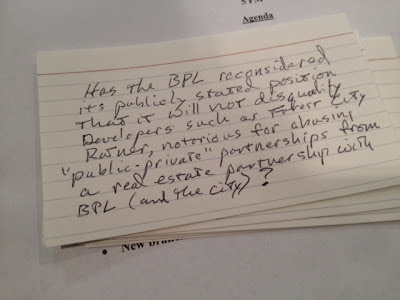 5 P.M.
Agenda
Has the BPL reconsidered
its publicly stated position
that it will not disqualify
Developers such as Forest City
Ratner, notorious for abusing
"public-private" partnerships from
a real estate partnership with
BPL (and the city)?
• New